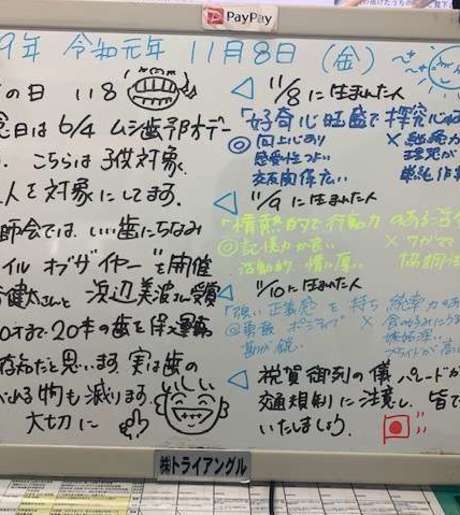 PayPay
9年 令和元年 11月8日 (金)
の日 118
念日は6/4 ムシ歯予防デー
こちらは子供対象
人を対象にしてます。
師会では、いい歯にちなみ
イル オブザイヤー"を開催
健太さんと 浜辺美波さん受賞
0才まで20本の歯を保つ運動
だと思います 実は歯の
べれる物も減ります。
大切に
◁ 11/8に生まれた人
「好奇心旺盛で探究心
◎ 向上心あり ×
感受性つよい
交友関係広い
◁ 11/9に生まれた人
「情熱的で行動力のある
◎記憶力が良い ×ワガママ
活動的 情に厚い 協調性
◁ 11/10に生まれた人
「強い正義感を持ち 統率力のあ
◎勇敢 ポジティブ ×
勘が鋭い プライドが高い
◁ 祝賀御列の儀 パレードが
交通規制に注意し、皆で
いたしましょう。
㈱トライアングル